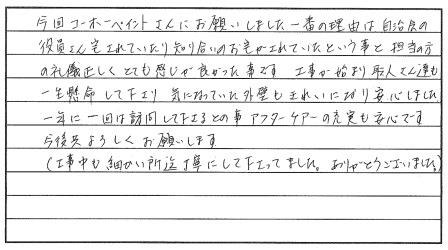 今回コーホーペイントさんにお願いしました一番の理由は自治会の
役員さん宅されていたり知り合いのお宅がされていたという事と担当の方
の礼儀正しくとても感じが良かった事です 工事が始まり職人さん達も
一生懸命して下さり 気になっていた外壁もきれいになり安心しました
一年に一回は訪問して下さるとの事 アフターケアーの充実も安心です
今後共よろしくお願いします
(工事中も細かい所迄丁寧にして下さってました。ありがとうございました)